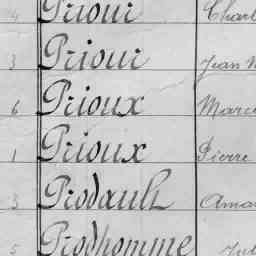 4 Priour Charl
3 Priour Jean M
6 Prioux Marce
1 Prioux Pierre
3 Prodault Aman
5 Prodhomme Jul